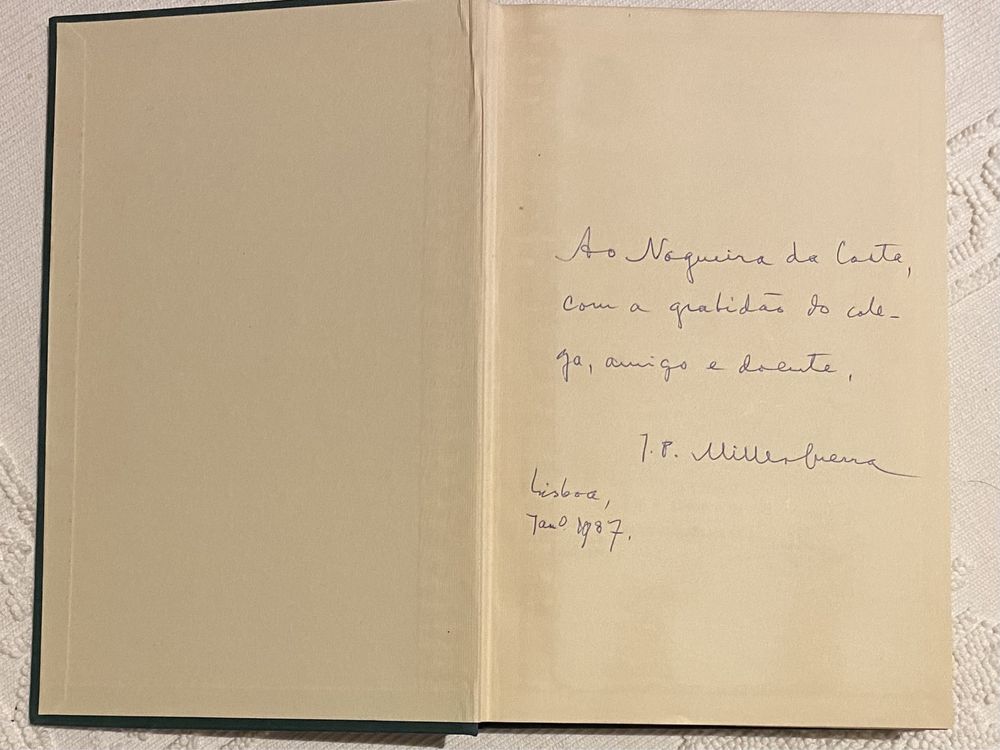 Ao Nogueira da Costa,
com a gratidão do cole-
ga, amigo e doente,
J.P. Miller Guerra
Lisboa,
Janº. 1987.